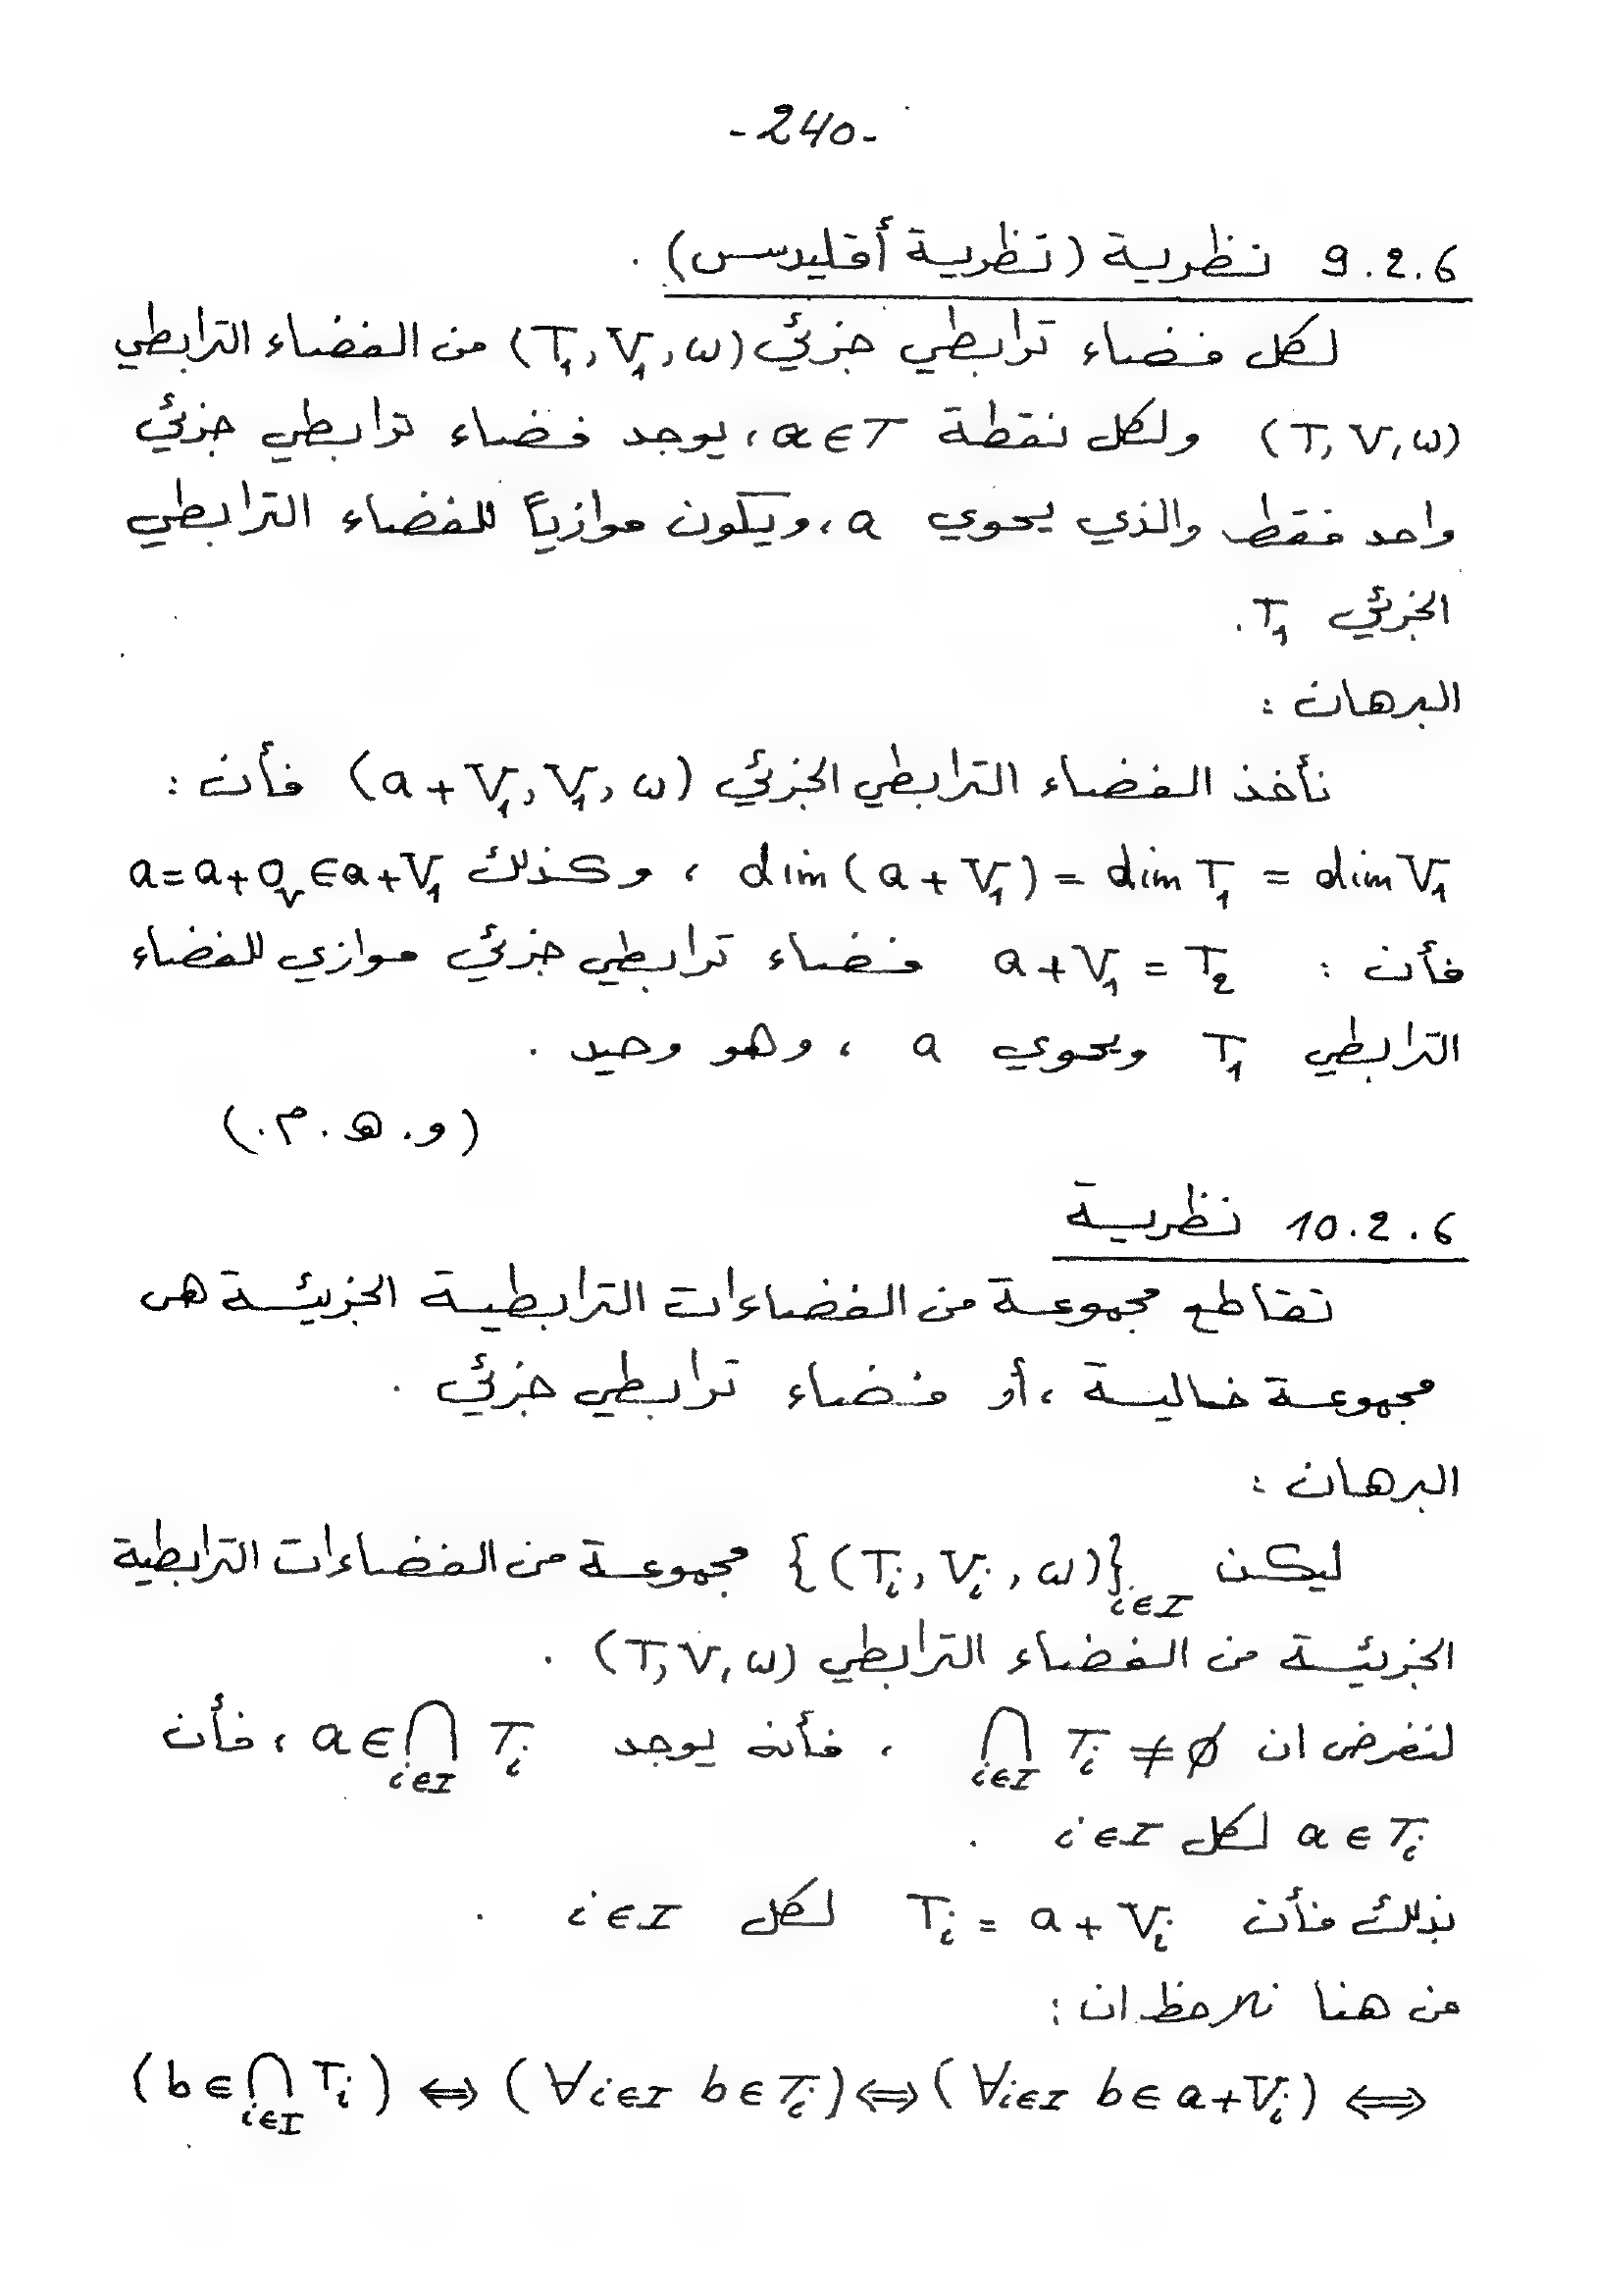 -240-
9.2.6 نظرية (نظرية أقليدس) .
لكل فضاء ترابطي جزئي (T₁, V₁, ω) من الفضاء الترابطي
(T, V, ω) ولكل نقطة a∈T ، يوجد فضاء ترابطي جزئي
واحد فقط والذي يحوي a ، ويكون موازياً للفضاء الترابطي
الجزئي T₁ .
البرهان :
نأخذ الفضاء الترابطي الجزئي (a + V₁, V₁, ω) فأن :
dim (a + V₁) = dim T₁ = dim V₁ ، وكذلك a = a + 0ᵥ ∈ a + V₁
فأن : a + V₁ = T₂ فضاء ترابطي جزئي موازي للفضاء
الترابطي T₁ ويحوي a ، وهو وحيد .
(و. ه. م.)
10.2.6 نظرية
تقاطع مجموعة من الفضاءات الترابطية الجزئية هي
مجموعة خالية ، أو فضاء ترابطي جزئي .
البرهان :
ليكن {(Tᵢ, Vᵢ, ω)}i∈I مجموعة من الفضاءات الترابطية
الجزئية من الفضاء الترابطي (T, V, ω) .
لنفرض ان ⋂i∈I Tᵢ ≠ ∅ ، فأنه يوجد a ∈ ⋂i∈I Tᵢ ، فأن
a ∈ Tᵢ لكل i∈I .
بذلك فأن Tᵢ = a + Vᵢ لكل i∈I .
من هنا نلاحظ ان :
(b ∈ ⋂i∈I Tᵢ) ⇔ (∀i∈I b ∈ Tᵢ) ⇔ (∀i∈I b ∈ a + Vᵢ) ⇔